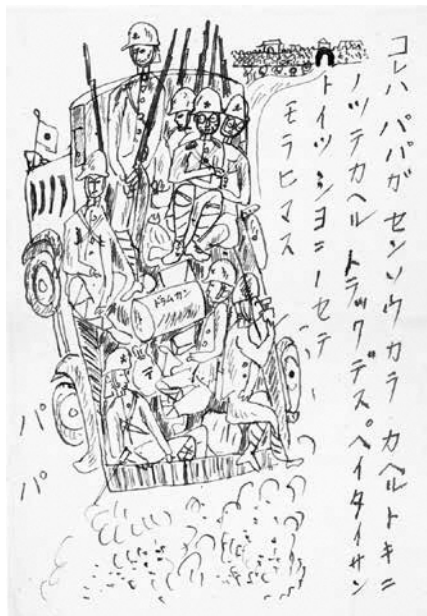 コレハ パパガ センソウカラ カヘルトキニ
ノツテカヘル トラックデス ヘイタイサン
トイツシヨニ ノセテ
モラヒマス
ドラムカン
パパ